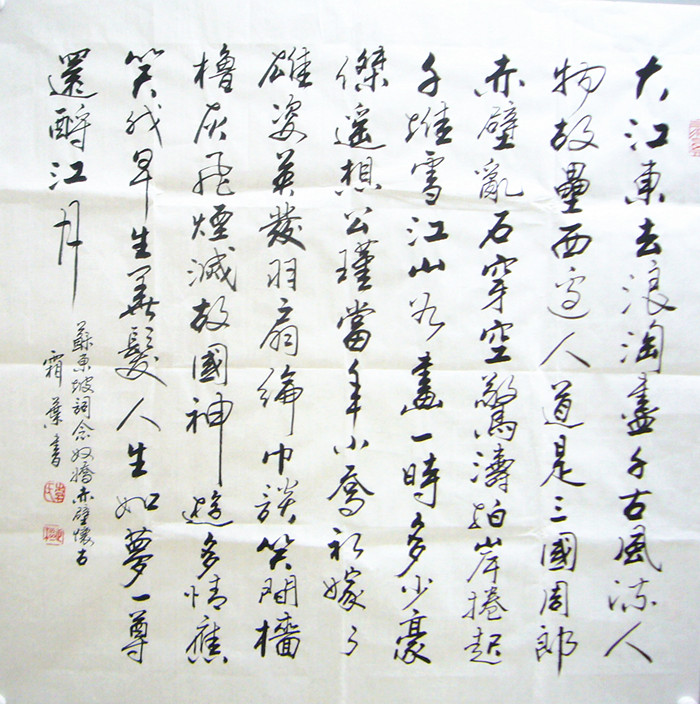 大江東去浪淘盡千古風流人
物故壘西邊人道是三國周郎
赤壁亂石穿空驚濤拍岸捲起
千堆雪江山如畫一時多少豪
傑遥想公瑾當年小喬初嫁了
雄姿英發羽扇綸巾談笑間檣
櫓灰飛煙滅故國神遊多情應
笑我早生華髮人生如夢一尊
還酹江月
蘇東坡詞念奴嬌赤壁懷古
霜葉書